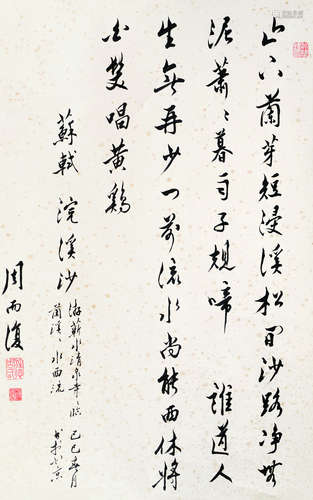 山下蘭芽短浸溪松間沙路净無
泥蕭〻暮雨子規啼 誰道人
生無再少門前流水尚能西休將
白髮唱黄鷄
蘇軾 浣溪沙
游蘄水清泉寺〻臨
蘭溪〻水西流
己巳
書於北京
周而復